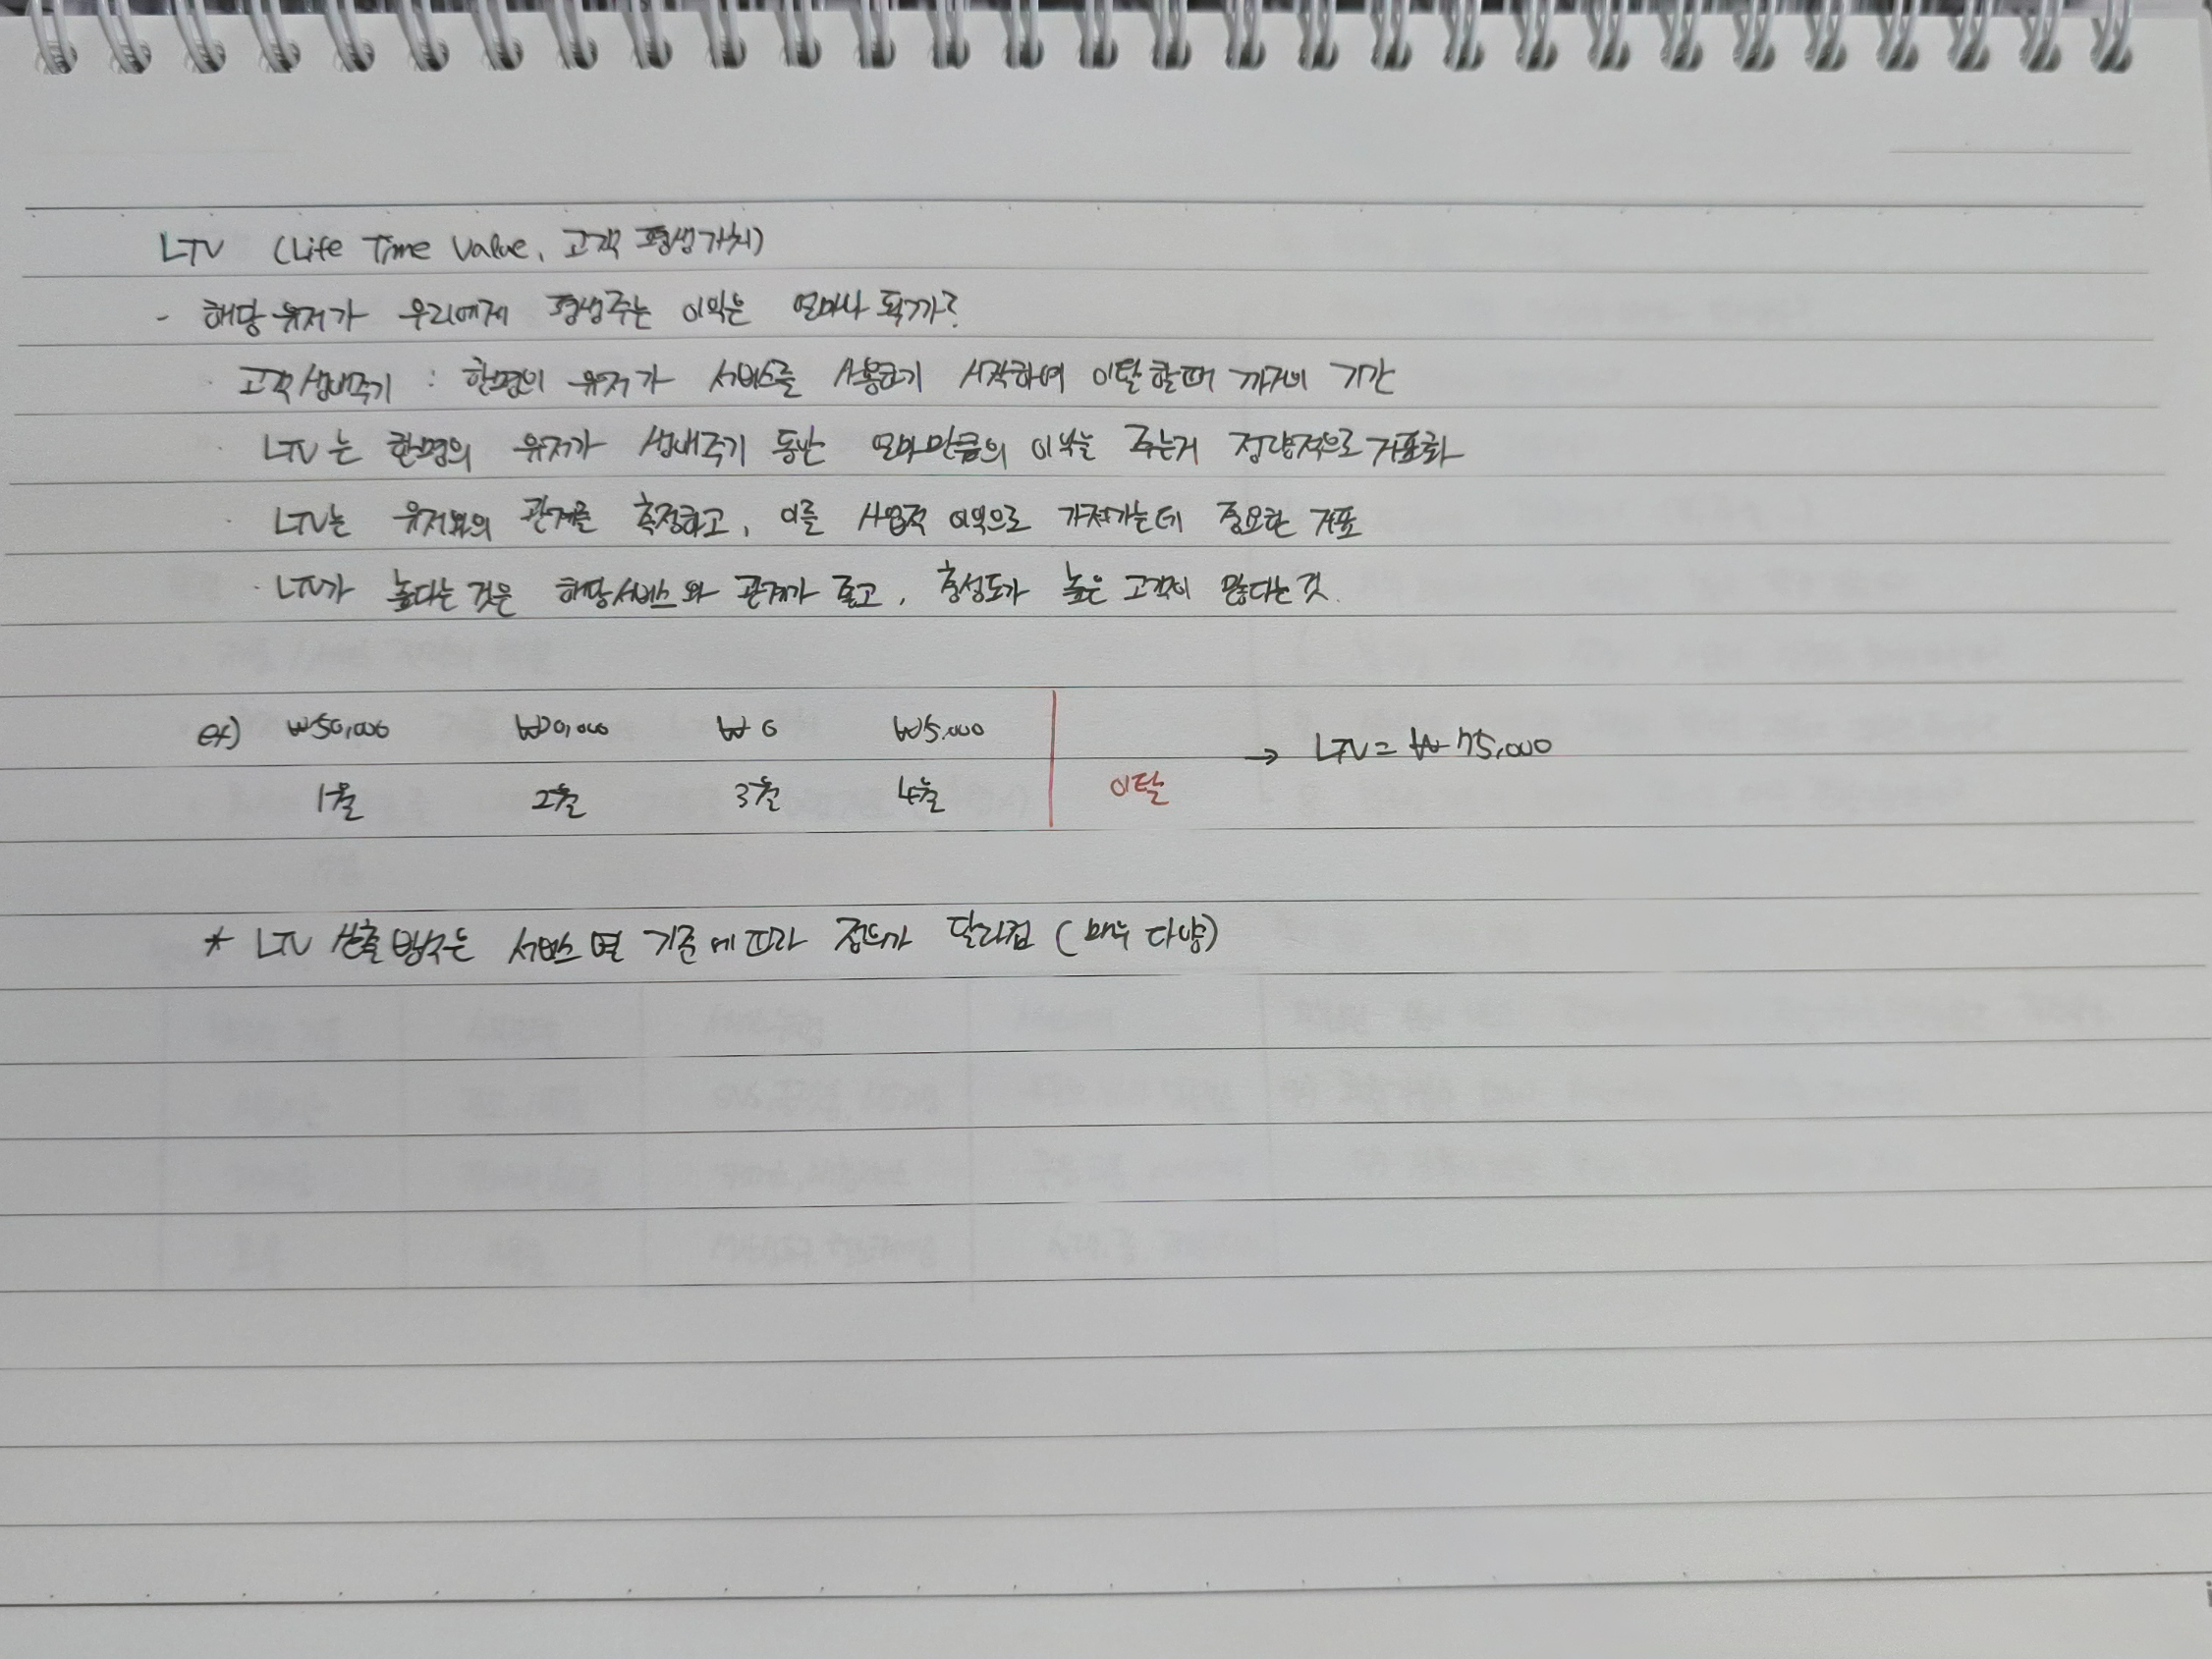 LTV (Life Time Value, 고객 평생가치)
- 해당 유저가 우리에게 평생주는 이익은 얼마나 될까?
· 고객생애주기 : 한명의 유저가 서비스를 사용하기 시작하여 이탈할때 까지의 기간
· LTV는 한명의 유저가 생애주기 동안 얼마만큼의 이익을 주는지 정량적으로 지표화
· LTV는 유저와의 관계를 측정하고, 이를 사업적 이익으로 가져가는데 중요한 지표
· LTV가 높다는 것은 해당서비스와 관계가 좋고, 충성도가 높은 고객이 많다는 것.
ex) ₩50,000 ₩20,000 ₩0 ₩5,000 → LTV = ₩75,000
1월 2월 3월 4월 이탈
* LTV 산출 방식은 서비스 별 기준에 따라 달라짐 (매우 다양)